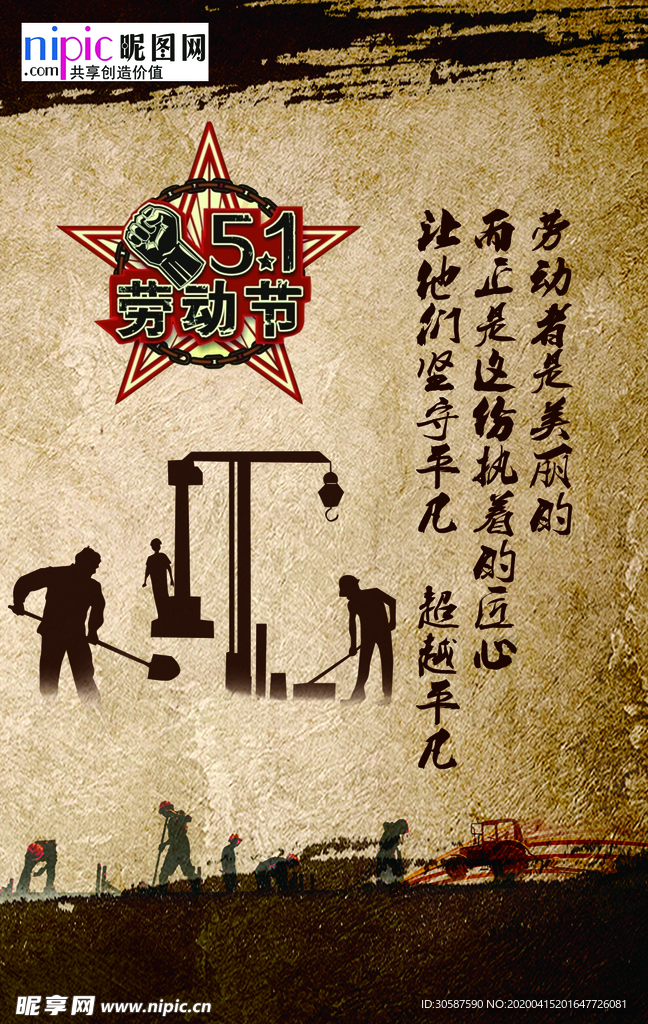 nipic 昵图网
.com 共享创造价值
5.1
劳动节
劳动者是美丽的
而正是这份执着的匠心
让他们坚守平凡 超越平凡
昵享网 www.nipic.cn
ID:30587590 NO:20200415201647726081